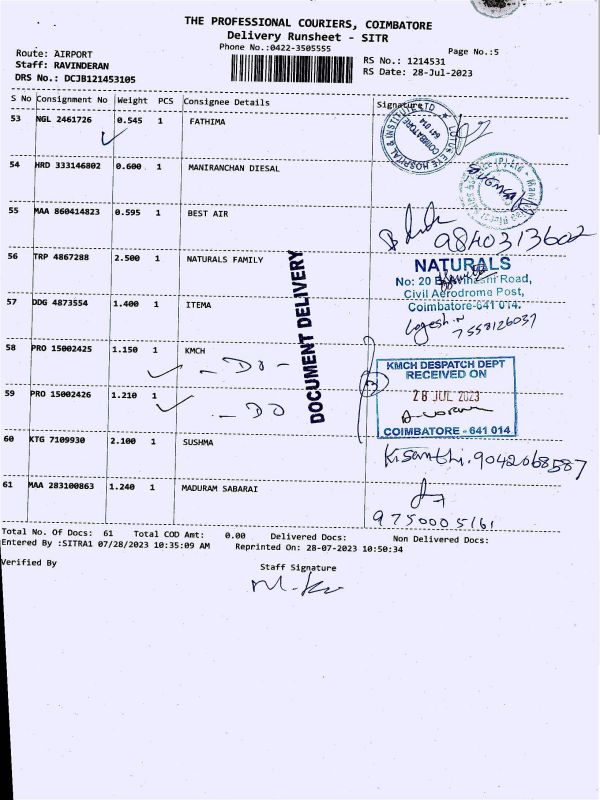 THE PROFESSIONAL COURIERS, COIMBATORE
Delivery Runsheet - SITR
Phone No.:0422-3505555
Page No.:5
Route: AIRPORT
Staff: RAVINDERAN
DRS No.: DCJB121453105
RS No.: 1214531
RS Date: 28-Jul-2023
S No Consignment No Weight PCS Consignee Details Signature
53 NGL 2461726 0.545 1 FATHIMA
LOTUS EYE HOSPITAL & INSTITUTE LTD
COIMBATORE
641 014
54 HRD 333146802 0.600 1 MANIRANCHAN DIESAL
55 MAA 860414823 0.595 1 BEST AIR
9840313602
56 TRP 4867288 2.500 1 NATURALS FAMILY
NATURALS
No: 20 E Road,
Civil Aerodrome Post,
Coimbatore-641 014.
57 DDG 4873554 1.400 1 ITEMA
Logesh.N
7558126037
DOCUMENT DELIVERY
58 PRO 15002425 1.150 1 KMCH
- DO -
KMCH DESPATCH DEPT
RECEIVED ON
28 JUL 2023
COIMBATORE - 641 014
59 PRO 15002426 1.210 1
- DO
60 KTG 7109930 2.100 1 SUSHMA
K.Santhi. 9042068587
61 MAA 283100863 1.240 1 MADURAM SABARAI
9750005161
Total No. Of Docs: 61 Total COD Amt: 0.00 Delivered Docs: Non Delivered Docs:
Entered By :SITRA1 07/28/2023 10:35:09 AM Reprinted On: 28-07-2023 10:50:34
Verified By
Staff Signature